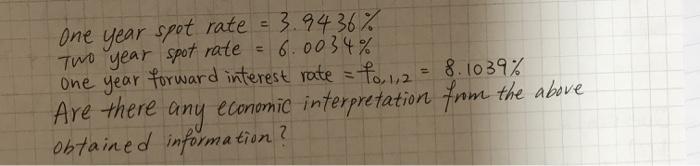 One year spot rate = 3.9436%
Two year spot rate = 6.0034%
One year forward interest rate = f0,1,2 = 8.1039%
Are there any economic interpretation from the above
obtained information?